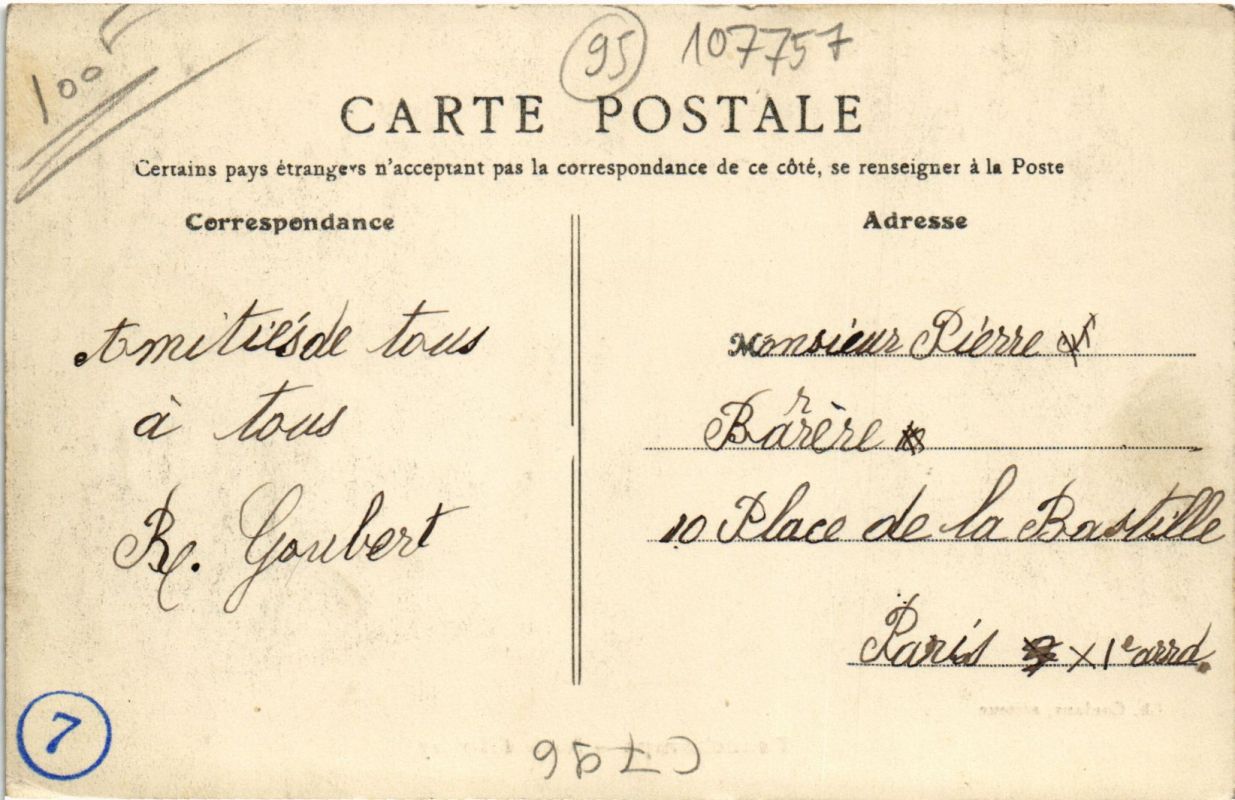 100F
95 107757
CARTE POSTALE
Certains pays étrangers n'acceptant pas la correspondance de ce côté, se renseigner à la Poste
Correspondance
Amitiés de tous
à tous
R. Goubert
Adresse
Monsieur Pierre
Barrère
10 Place de la Bastille
Paris XIe arrd.
7
C796